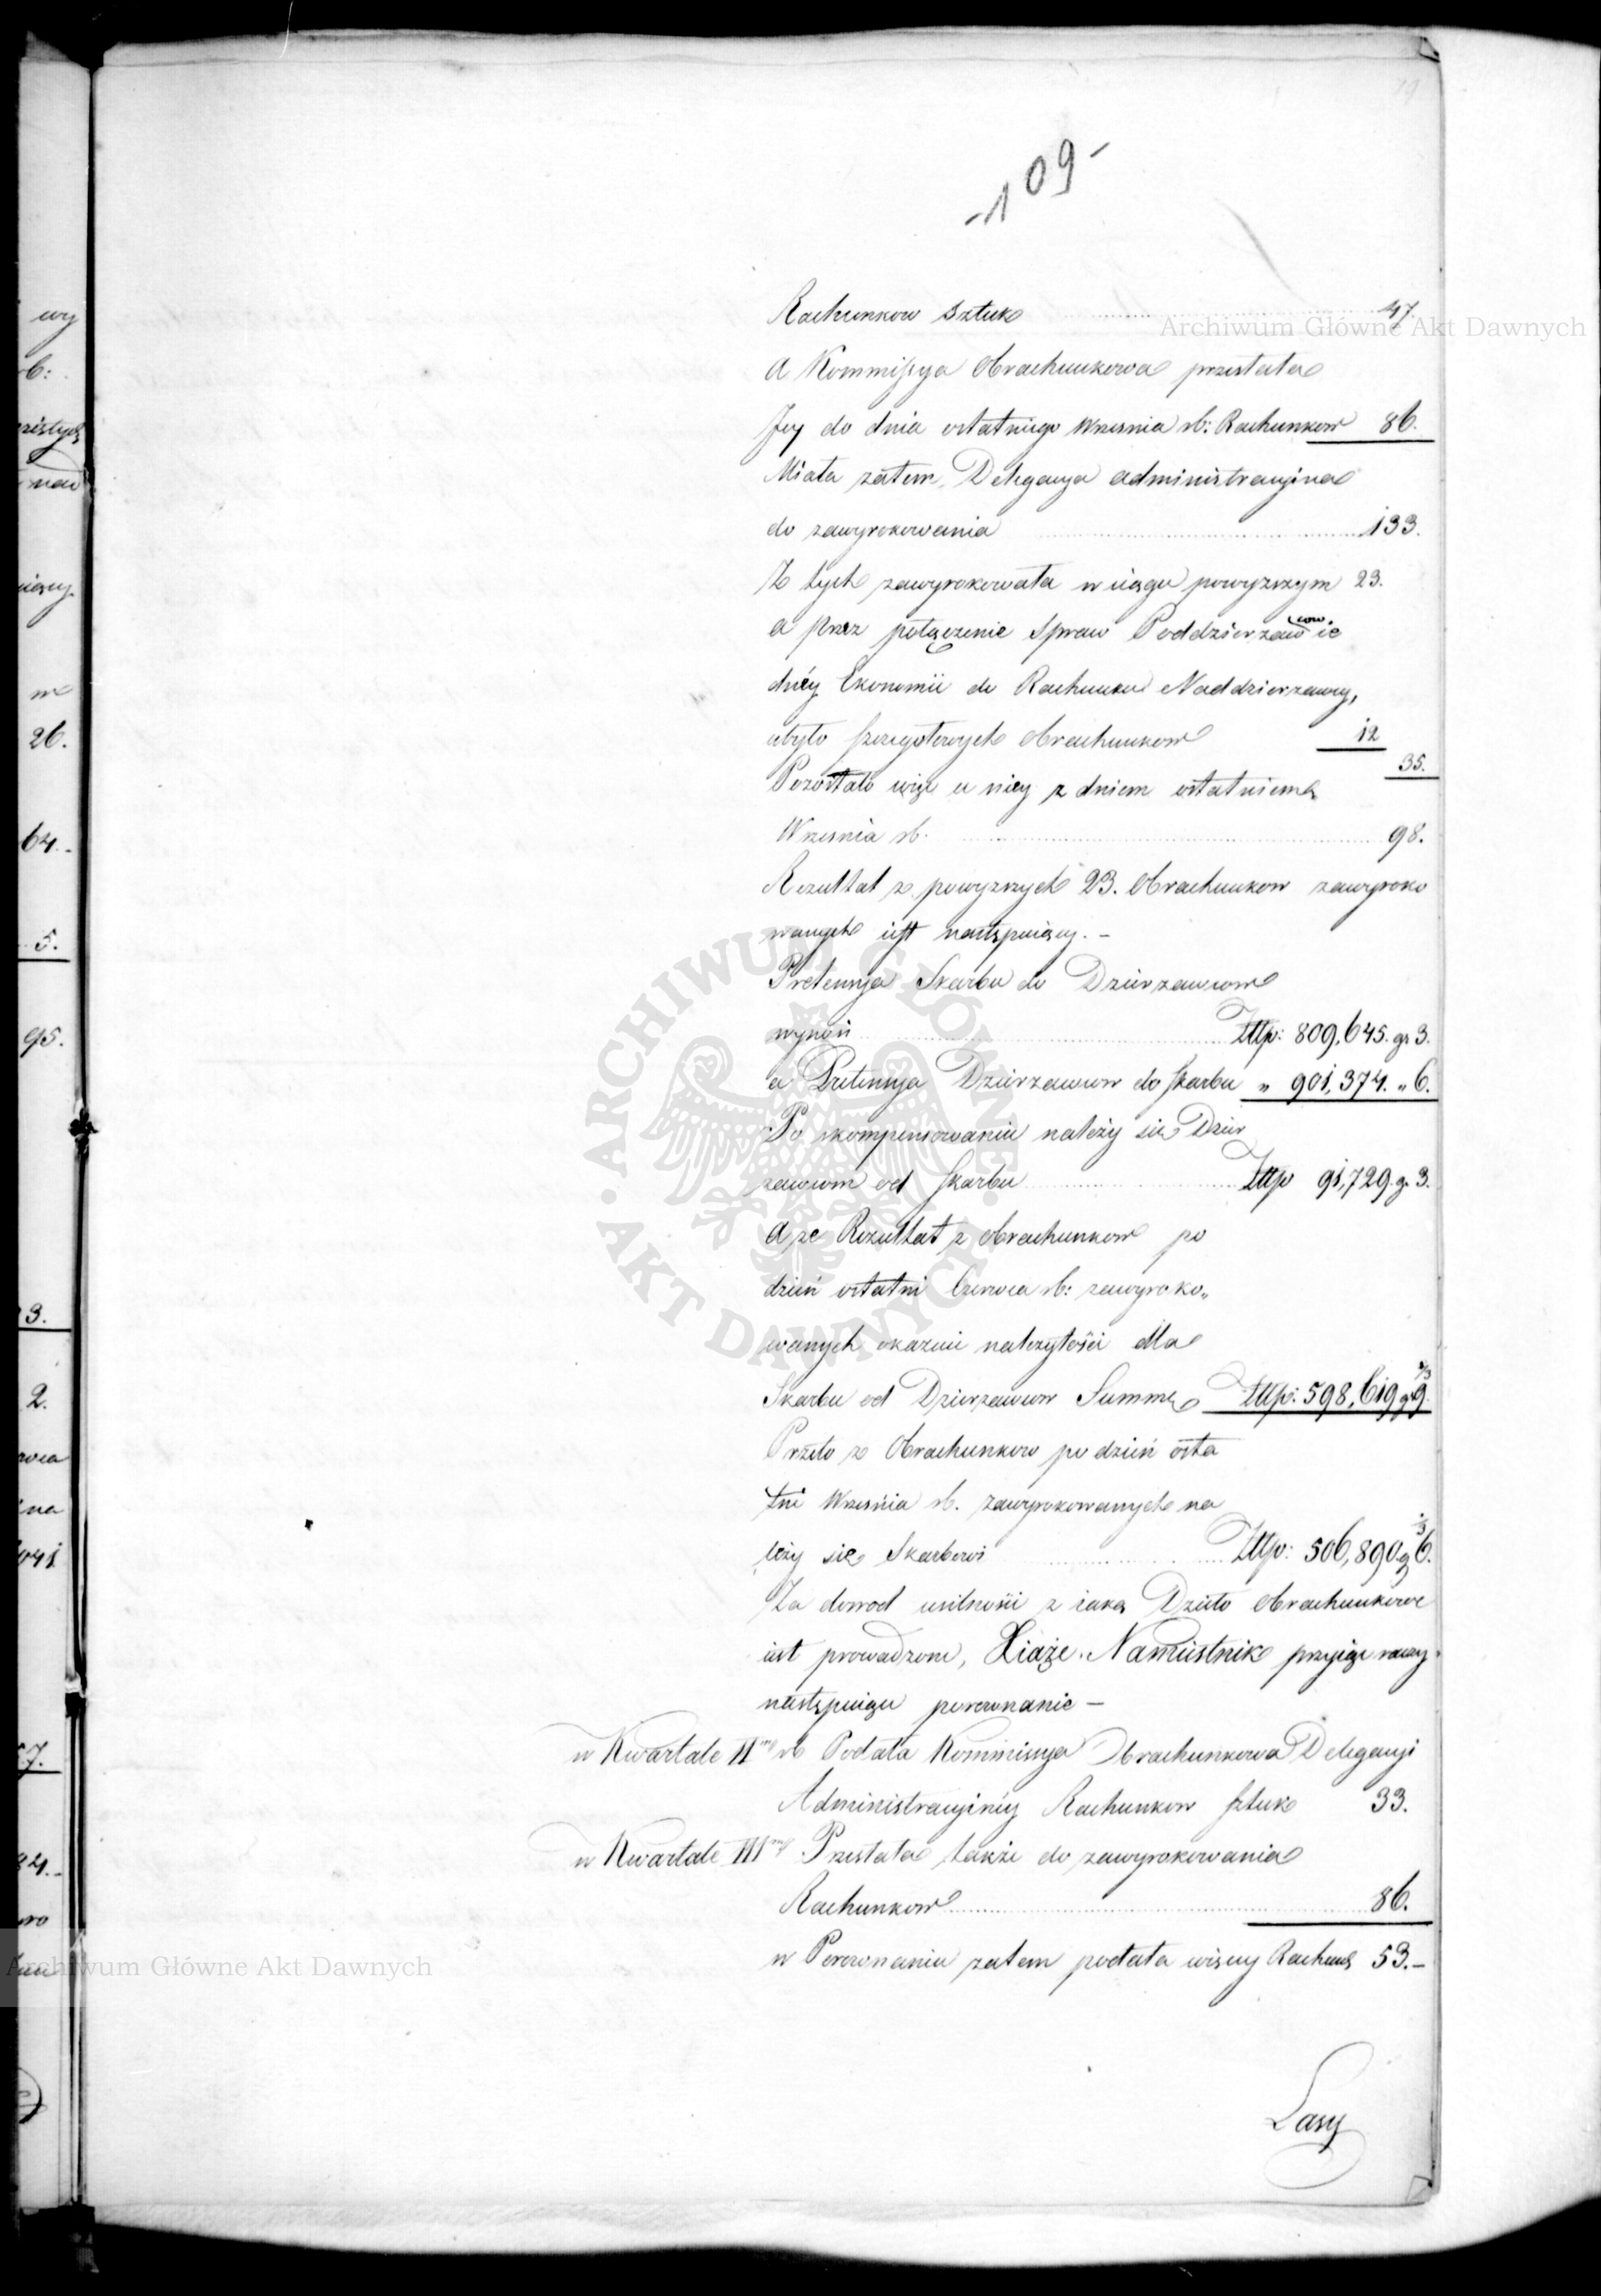 -109-
Rachunkow sztuk 47.
a Kommissya Obrachunkowa przesłała
Jey do dnia ostatniego Wrzesnia rb: Rachunkow 86.
Miała zatem Delegacya administracyina
do zawyrokowania 133.
Z tych zawyrokowała w ciągu powyzszym 23.
a przez połączenie Spraw Poddzierzawcow ie
dnéy Ekonomii do Rachunku Naddzierzawcy,
ubyło szczegołowych Obrachunkow 12
35.
Pozostało więc u niey z dniem ostatniem
Wrzesnia rb. 98.
Rezultat z powyzszych 23. Obrachunkow zawyroko
wanych iest następuiący. -
Pretensya Skarbu do Dzierzawcow
wynosi Złłp: 809,645. gr 3.
a Pretensya Dzierzawcow do Skarbu " 901,374. " 6.
Po skompensowaniu należy się Dzier
zawcom od Skarbu Złłp 91,729. g. 3.
A że Rezultat z Obrachunkow po
dzień ostatni Czerwca rb: zawyroko„
wanych okazuie należytości dla
Skarbu od Dzierzawcow Summę Złłp: 598,619 gr 9 1/3.
Przeto z Obrachunkow po dzień osta
tni Wrzesnia rb. zawyrokowanych na
leży się Skarbowi Złłp: 506,890 g 6 1/3.
Za dowod usilności z iaką Dzieło Obrachunkowe
iest prowadzone, Xiąże Namiestnik przyiąć raczy
następuiące porownanie -
w Kwartale IIm rb Podała Kommissya Obrachunkowa Delegacyi
Administracyinéy Rachunkow sztuk 33.
w Kwartale IIIm Przesłała także do zawyrokowania
Rachunkow 86.
w Porownaniu zatem podała więcey Rachunk 53.-
Lasy
wy
b:
me
26.
64.-
5.
95.
3.
2.
na
041
7.
Archiwum Główne Akt Dawnych
Archiwum Główne Akt Dawnych
ARCHIWUM GŁÓWNE · AKT DAWNYCH ·